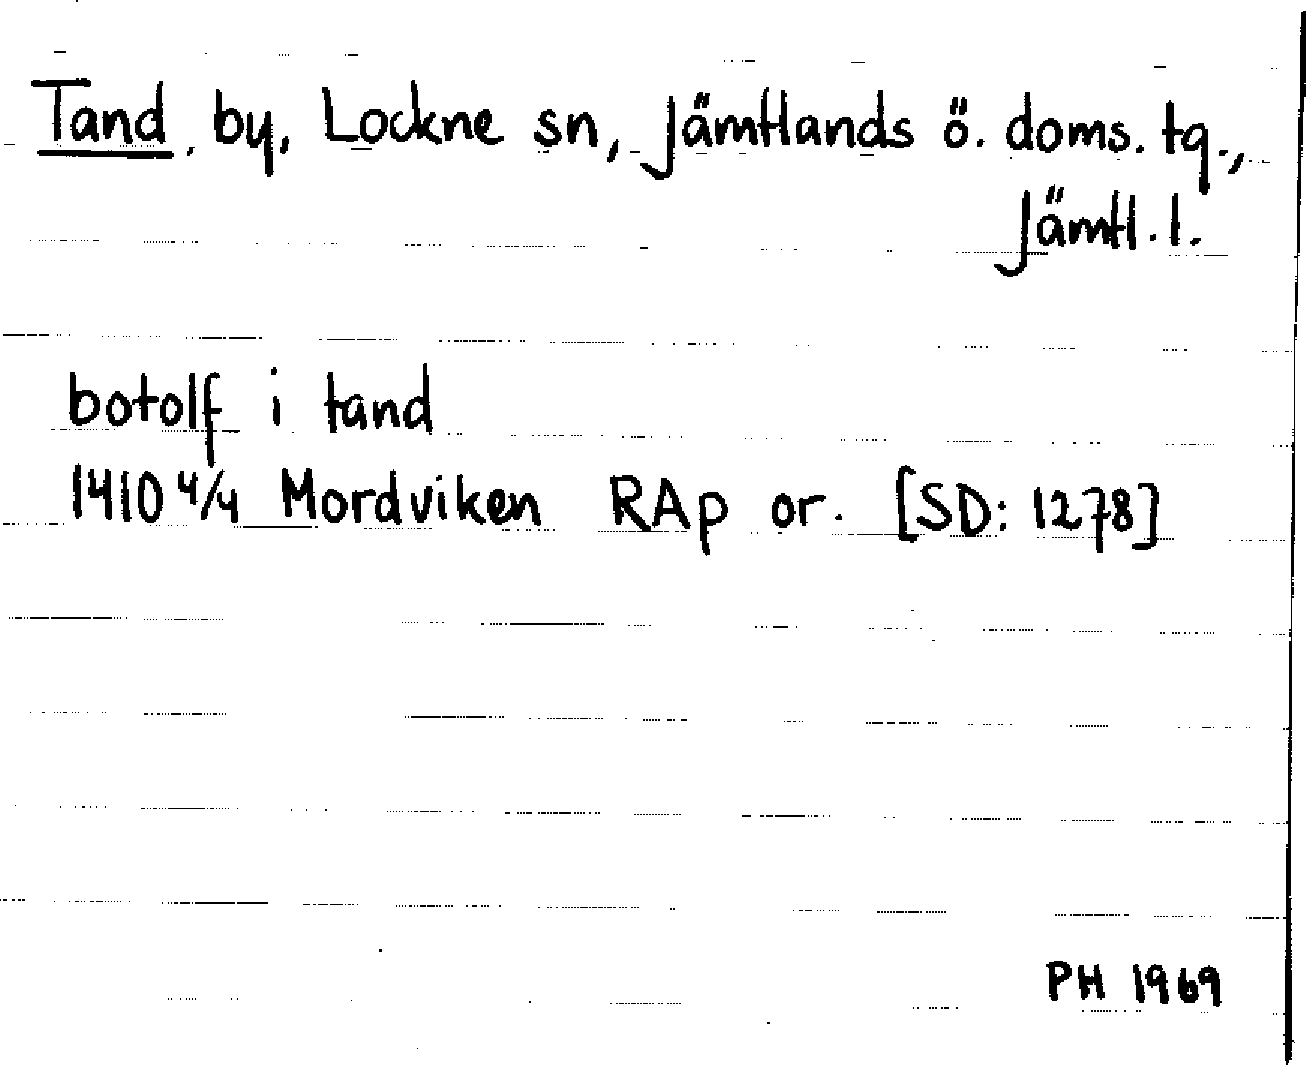 Tand, by, Lockne sn, Jämtlands ö. doms. tg.,
Jämtl. l.
botolf i tand
1410 4/4 Mordviken RAp or. [SD: 1278]
PH 1969